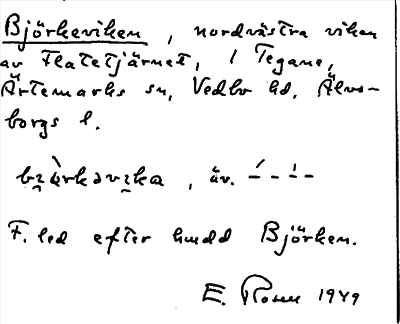 Björkeviken, nordvästra viken
av Flatetjärnet, i Tegane,
Ärtemarks sn, Vedbo hd, Älvs-
borgs l.
, äv.
F. led efter hudd Björken.
E. Rosen 1949